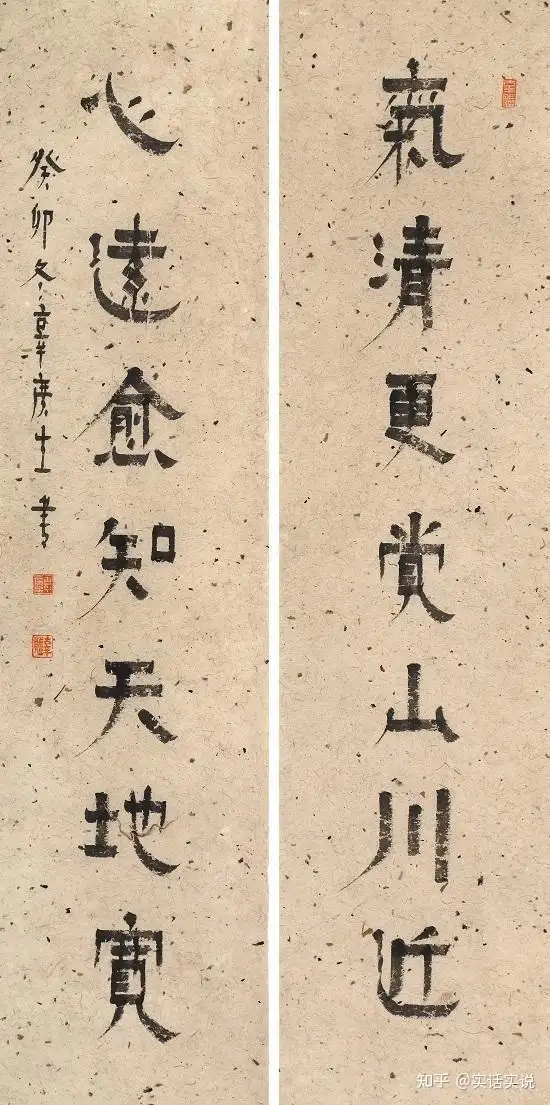 氣清更覚山川近
心遠愈知天地寬
癸卯冬 生書
知乎 @实话实说